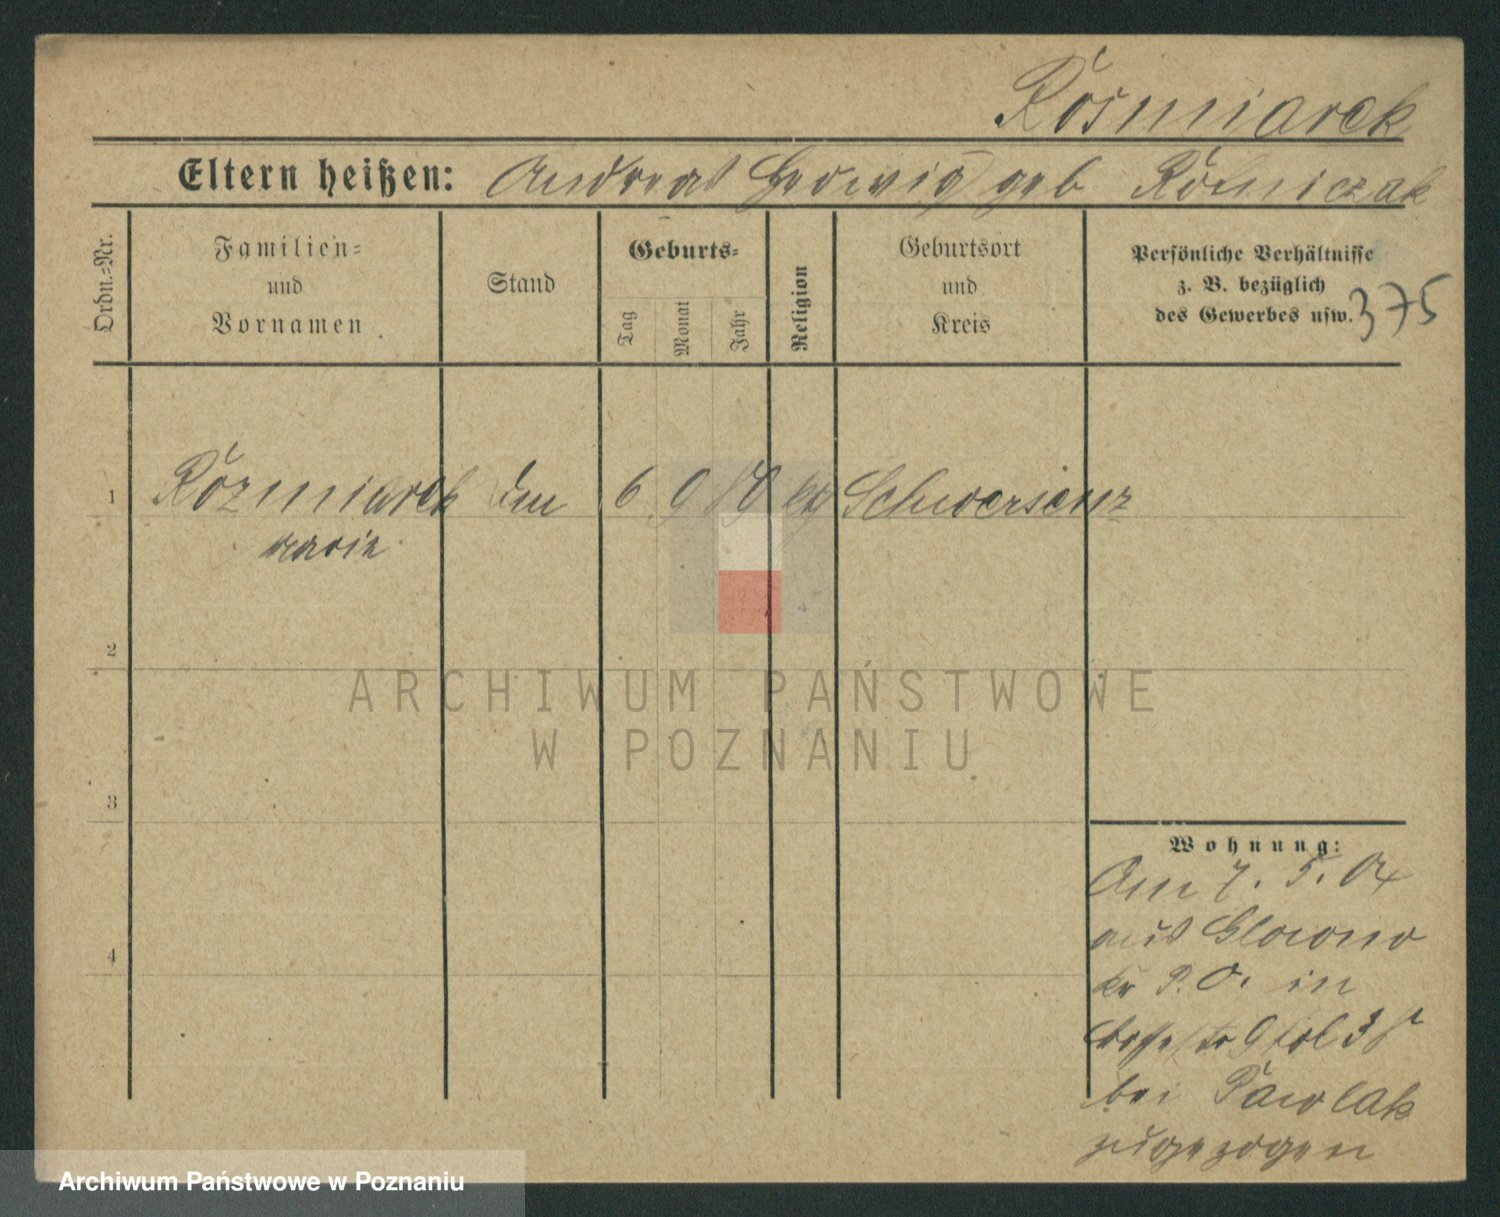 Rósmiarek
Eltern heißen: Andreas Hedwig geb Rótniczak
Ordn.=Nr.
Familien=
und
Vornamen
Stand
Geburts=
Tag
Monat
Jahr
Religion
Geburtsort
und
Kreis
Persönliche Verhältnisse
z. B. bezüglich
des Gewerbes usw. 375
1 Rózmiarek 6 9 kt Schwersenz
Marie
2
3
Wohnung:
Am 7. 5. 04
aus Glowno
4
Kr P. O. in
bei Pawlak
zugezogen
ARCHIWUM PAŃSTWOWE
W POZNANIU
Archiwum Państwowe w Poznaniu